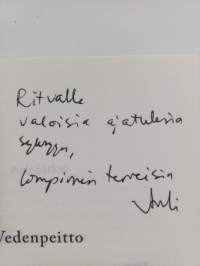 Ritvalle
valoisia ajatuksia
syksyyn,
lämpimin terveisin
Vedenpeitto